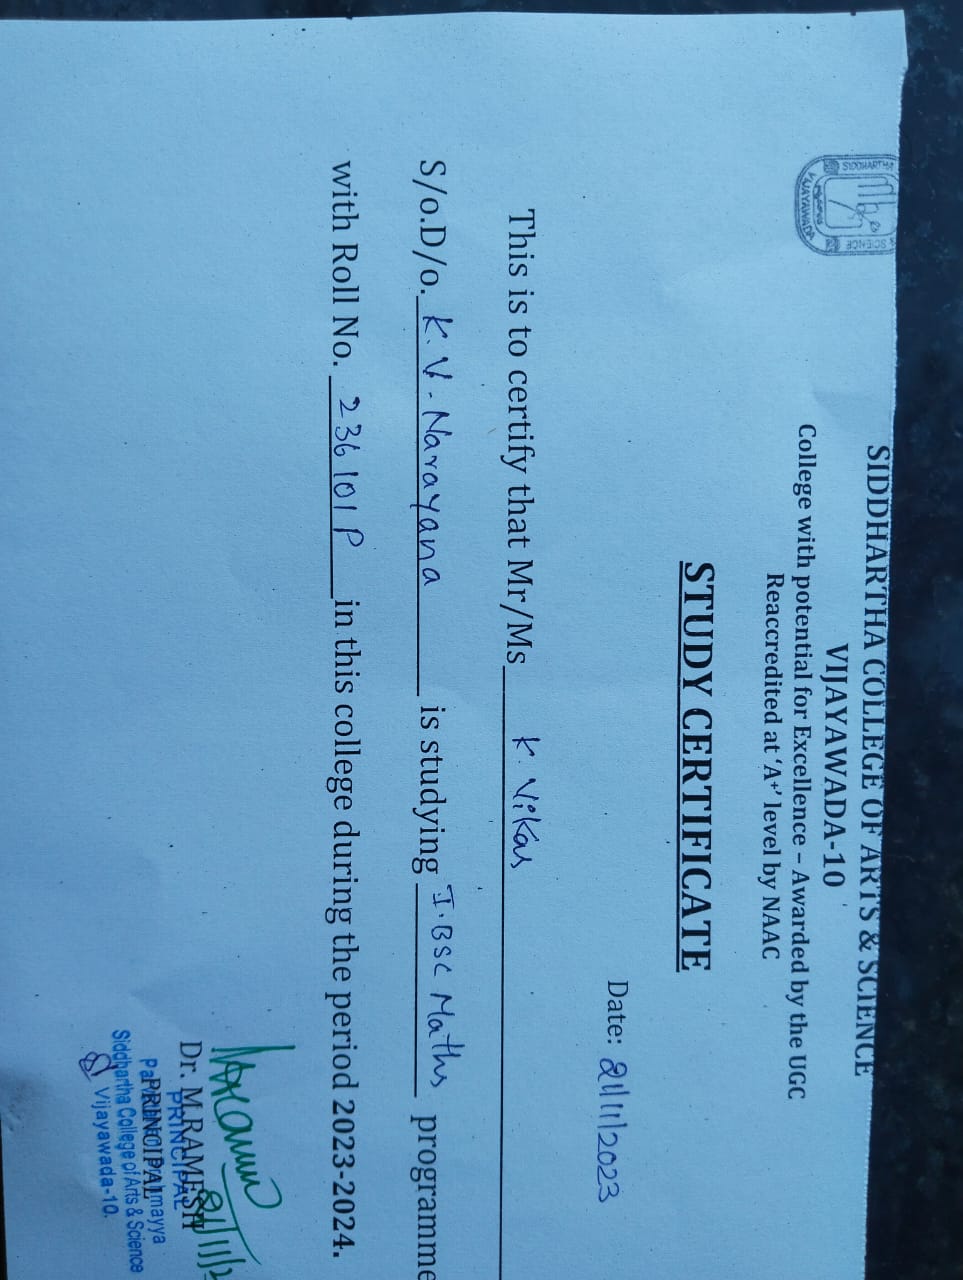 SIDDHARTHA COLLEGE OF ARTS & SCIENCE
VIJAYAWADA-10
College with potential for Excellence – Awarded by the UGC
Reaccredited at 'A+' level by NAAC
SIDDHARTHA
SCIENCE
VIJAYAWADA
STUDY CERTIFICATE
Date: 21/11/2023
This is to certify that Mr/Ms K. Vikas
S/o.D/o. K. V. Narayana is studying I. BSC Maths programme
with Roll No. 236101P in this college during the period 2023-2024.
Dr. M.RAMESH
PRINCIPAL
PRINCIPAL
Siddhartha College of Arts & Science
Vijayawada-10.